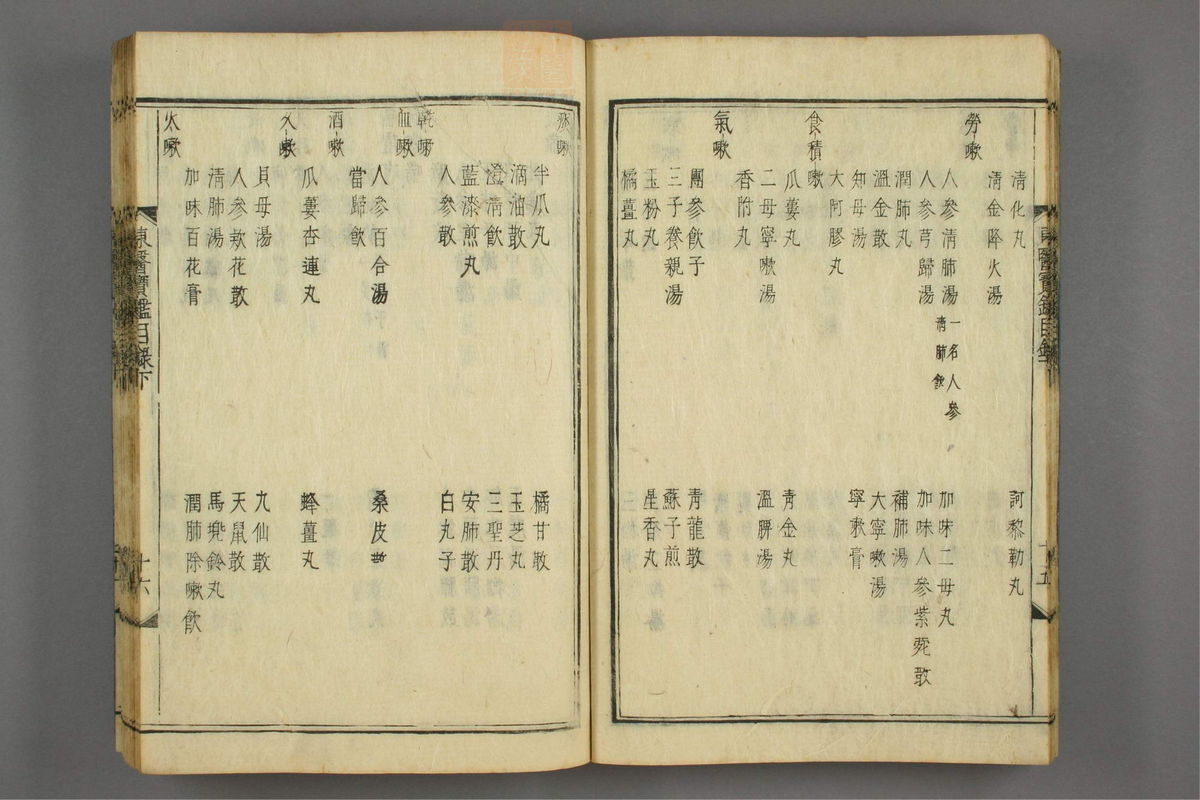 清化丸 訶黎勒丸
清金降火湯
勞嗽
人參清肺湯 一名人參清肺飲 加味二母丸
人參芎歸湯 加味人參紫菀散
潤肺丸 補肺湯
溫金散 大寧嗽湯
知母湯 寧嗽膏
大阿膠丸
食積嗽
瓜蔞丸 青金丸
二母寧嗽湯 溫脾湯
香附丸
氣嗽
團參飲子 青龍散
三子養親湯 蘇子煎
玉粉丸 星香丸
橘薑丸
東醫寶鑑目錄下
十五
痰嗽
半瓜丸 橘甘散
滴油散 玉芝丸
澄清飲 三聖丹
藍漆煎丸 安肺散
人參散 白丸子
乾嗽
血嗽
人參百合湯 桑皮散
當歸飲
酒嗽
瓜蔞杏連丸 蜂薑丸
久嗽
貝母湯 九仙散
人參款花散 天鼠散
清肺湯 馬兜鈴丸
加味百花膏 潤肺除嗽飮
火嗽
東醫寶鑑目錄下
十六